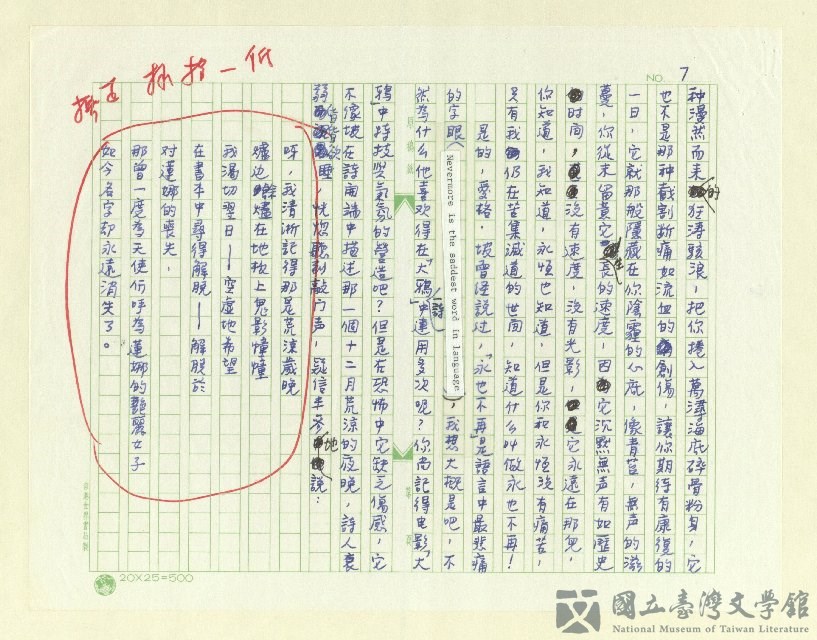 NO. 7
換 正 抄 招 一 低
種漫然而来的狂濤駭浪，把你捲入萬潯海底碎骨粉身，它
也不是那种戳剖断痛如流血的創傷，讓你期待有康復的
一日，它就那般隱藏在你陰霾的心底，像青苔，無声的滋
蔓，你從未留意它生長的速度，因它沉默無声有如歷史
时间，沒有速度，沒有光影，它永遠在那兒，
你知道，我知道，永恒也知道，但是你和永恒沒有痛苦，
只有我仍在苦集滅道的世间，知道什么叫做永也不再！
是的，愛格·坡曾经說过，「永也不再」是語言中最悲痛
的字眼（Nevermore is the saddest word in language），我想大概是吧，不
然為什么他喜欢得在「大鴉」一詩中連用多次呢？你尚記得电影「大
鴉」中特技災氣氛的營造吧？但是在恐怖中它缺乏傷感，它
不像坡在詩開端中描述那一個十二月荒涼的夜晚，詩人衰
弱昏昏欲睡，恍惚聽到敲门声，疑信半参地說：
呀，我清晰記得那是荒涼歲晚
爐边餘燼在地板上鬼影憧憧
我渴切翌日——空虛地希望
在書本中尋得解脫——解脫於
對蓮娜的喪失，
那曾一度為天使们呼為蓮娜的艷麗女子
如今名字却永遠消失了。
20X25=500
國立臺灣文學館
National Museum of Taiwan Literature